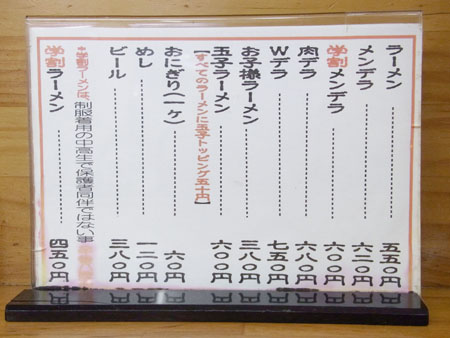 ラーメン……五五〇円
メンデラ……六二〇円
学割メンデラ……六〇〇円
肉デラ……六八〇円
Wデラ……七五〇円
お子様ラーメン……三八〇円
玉子ラーメン……六〇〇円
【すべてのラーメンに玉子トッピング五十円】
おにぎり(一ヶ)……六〇円
めし……一二〇円
ビール……三八〇円
*学割ラーメンは、制服着用の中高生で保護者同伴ではない事
学割ラーメン……四五〇円